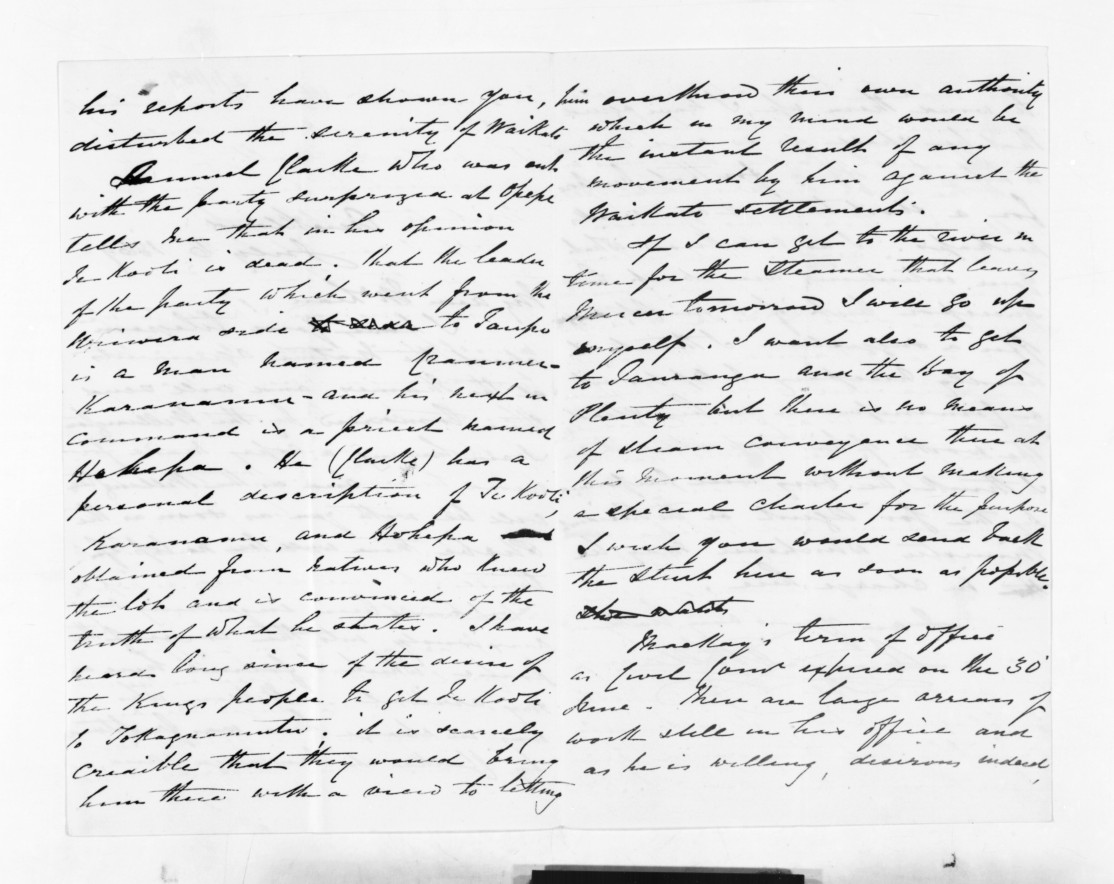 his reports have shown you,
disturbed the serenity of Waikato
Samuel Clarke who was out
with the party surprized at Opepe
tells me that in his opinion
Te Kooti is dead; that the leader
of the party which went from the
Wairoa side to Taupo
is a man named
Karanama - and his next in
command is a priest named
Hohepa. He (Clarke) has a
personal description of Te Kooti,
Karanama, and Hohepa
obtained from natives who knew
the lot and is convinced of the
truth of what he states. I have
heard long since of the desire of
the Kings people to get Te Kooti
to Tokagnamutu; it is scarcely
credible that they would bring
him there with a view to letting
him overthrow their own authority
which in my mind would be
the instant result of any
movement by him against the
Waikato settlements.
If I can get to the river in
time for the steamer that leaves
Mercer tomorrow I will go up
myself. I want also to get
to Tauranga and the Bay of
Plenty but there is no means
of steam conveyance there at
this moment without making
a special charter for the purpose
I wish you would send back
the Sturt here as soon as possible.
she wants
Mackay's term of office
as Civil Comr expired on the 30
June. There are large arrears of
work still in his office and
as he is willing, desirous indeed,